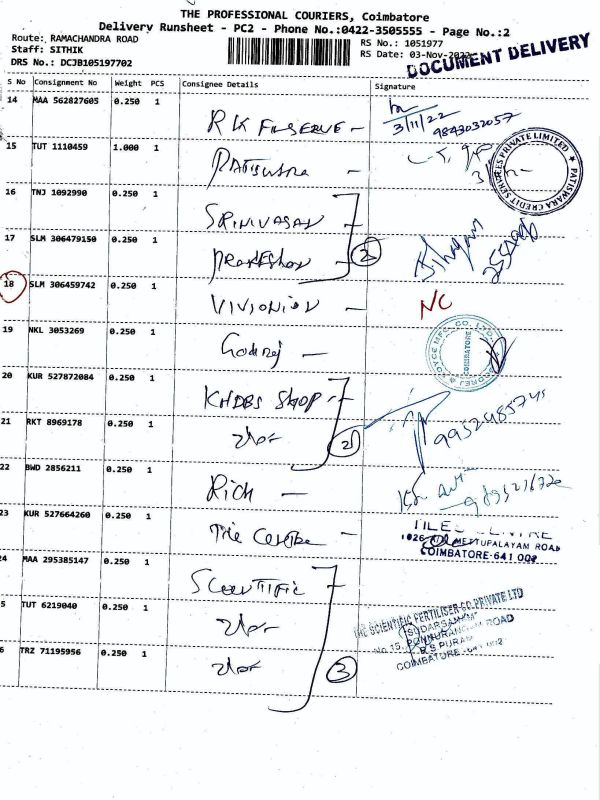 THE PROFESSIONAL COURIERS, Coimbatore
Delivery Runsheet - PC2 - Phone No.:0422-3505555 - Page No.:2
Route: RAMACHANDRA ROAD
RS No.: 1051977
Staff: SITHIK
RS Date: 03-Nov-2022
DRS No.: DCJB105197702
DOCUMENT DELIVERY
S No Consignment No Weight PCS Consignee Details Signature
14 MAA 562827605 0.250 1
RK FINSERVE -
3/11/22
9843032057
15 TUT 1110459 1.000 1
PATISWARA CREDIT SERVICES PRIVATE LIMITED
16 TNJ 1092990 0.250 1
SRINIVASAN
17 SLM 306479150 0.250 1
2
18 SLM 306459742 0.250 1
NC
19 NKL 3053269 0.250 1
Godrej -
GODREJ & BOYCE MFG. CO. LTD.
COIMBATORE
20 KUR 527872084 0.250 1
SHOP -
21 RKT 8969178 0.250 1
2
22 BWD 2856211 0.250 1
Rich -
23 KUR 527664260 0.250 1
Tile Centre -
TILES CENTRE
1026 METTUPALAYAM ROAD
COIMBATORE-641 002
24 MAA 295385147 0.250 1
SCIENTIFIC
5 TUT 6219040 0.250 1
THE SCIENTIFIC FERTILISER CO PRIVATE LTD
"SUDARSANAM"
No.15, PONNURANGAM ROAD
R S PURAM
COIMBATORE -641 002
6 TRZ 71195956 0.250 1
3